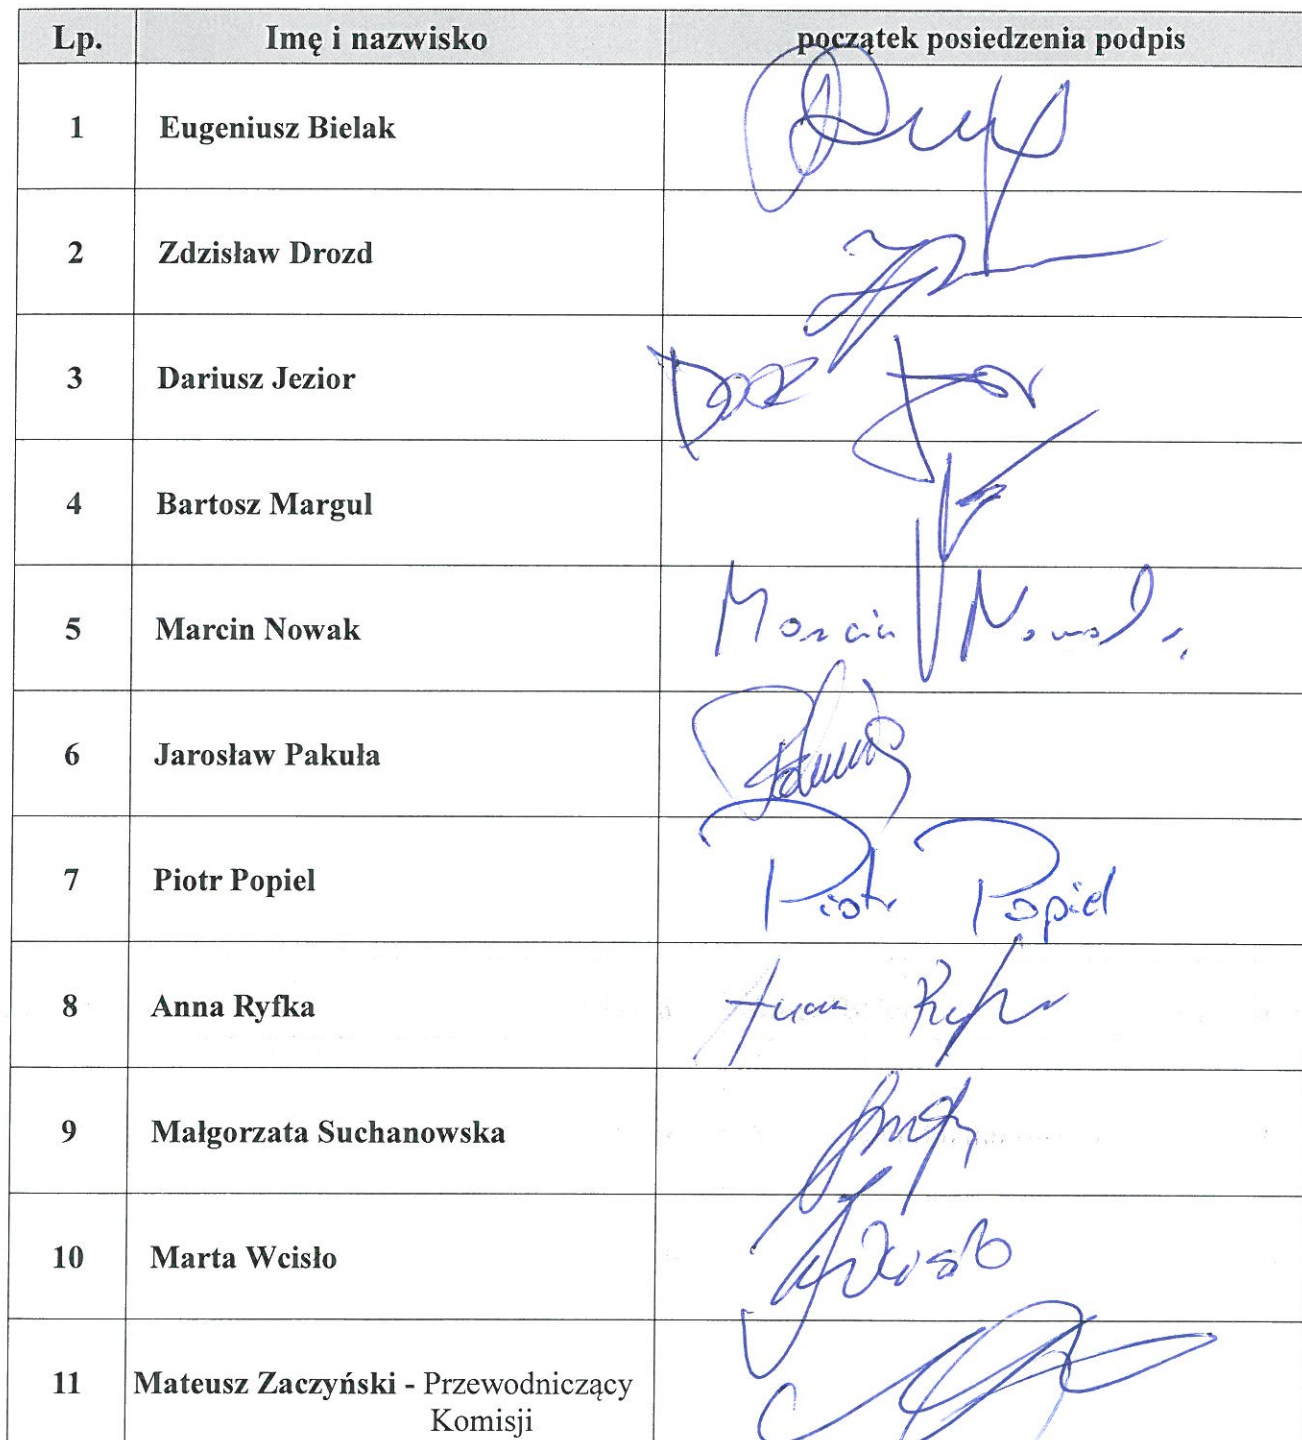 Lp. Imę i nazwisko początek posiedzenia podpis
1 Eugeniusz Bielak
2 Zdzisław Drozd
3 Dariusz Jezior
4 Bartosz Margul
5 Marcin Nowak Marcin Nowak
6 Jarosław Pakuła
7 Piotr Popiel Piotr Popiel
8 Anna Ryfka Anna Ryfka
9 Małgorzata Suchanowska
10 Marta Wcisło Wcisło
11 Mateusz Zaczyński - Przewodniczący
Komisji